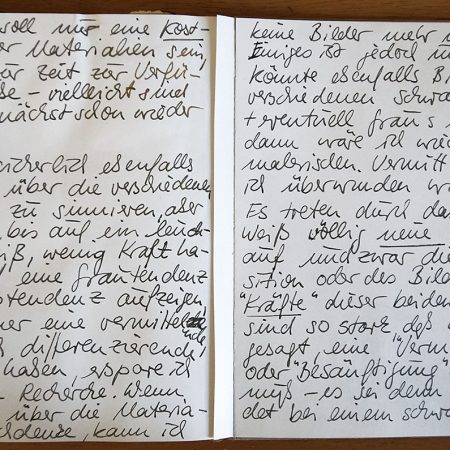 soll nur eine Kost-
er Materialien sein,
zur Zeit zur Verfü-
se – vielleicht sind
nächst schon wieder
sicherlich ebenfalls
über die verschiedenen
zu sinnieren, aber
bis auf ein leuch-
iß, wenig Kraft ha-
eine Grautendenz
otendenz aufzeigen,
ner eine vermittelnde
differenzierende
haben, erspare ich
– Recherche. Wenn
über die Materia-
denze, kann ich
keine Bilder mehr
Einiges ist jedoch
könnte ebenfalls Bi
verschiedenen schwa
+ eventuell Graus
dann wäre ich wied
malerischen. Vermitt
ich überwunden w
Es treten durch da
Weiß völlig neue
auf und zwar die
sition oder des Bild
"Kräfte" dieser beiden
sind so stark, daß
gesagt, eine "Verm
oder "Besänftigung"
muß – es sei denn
det bei einem schwa